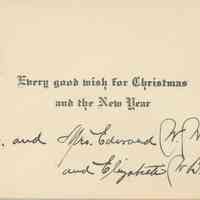 Every good wish for Christmas
and the New Year
and Mrs. Edward (W.
and Elizabeth